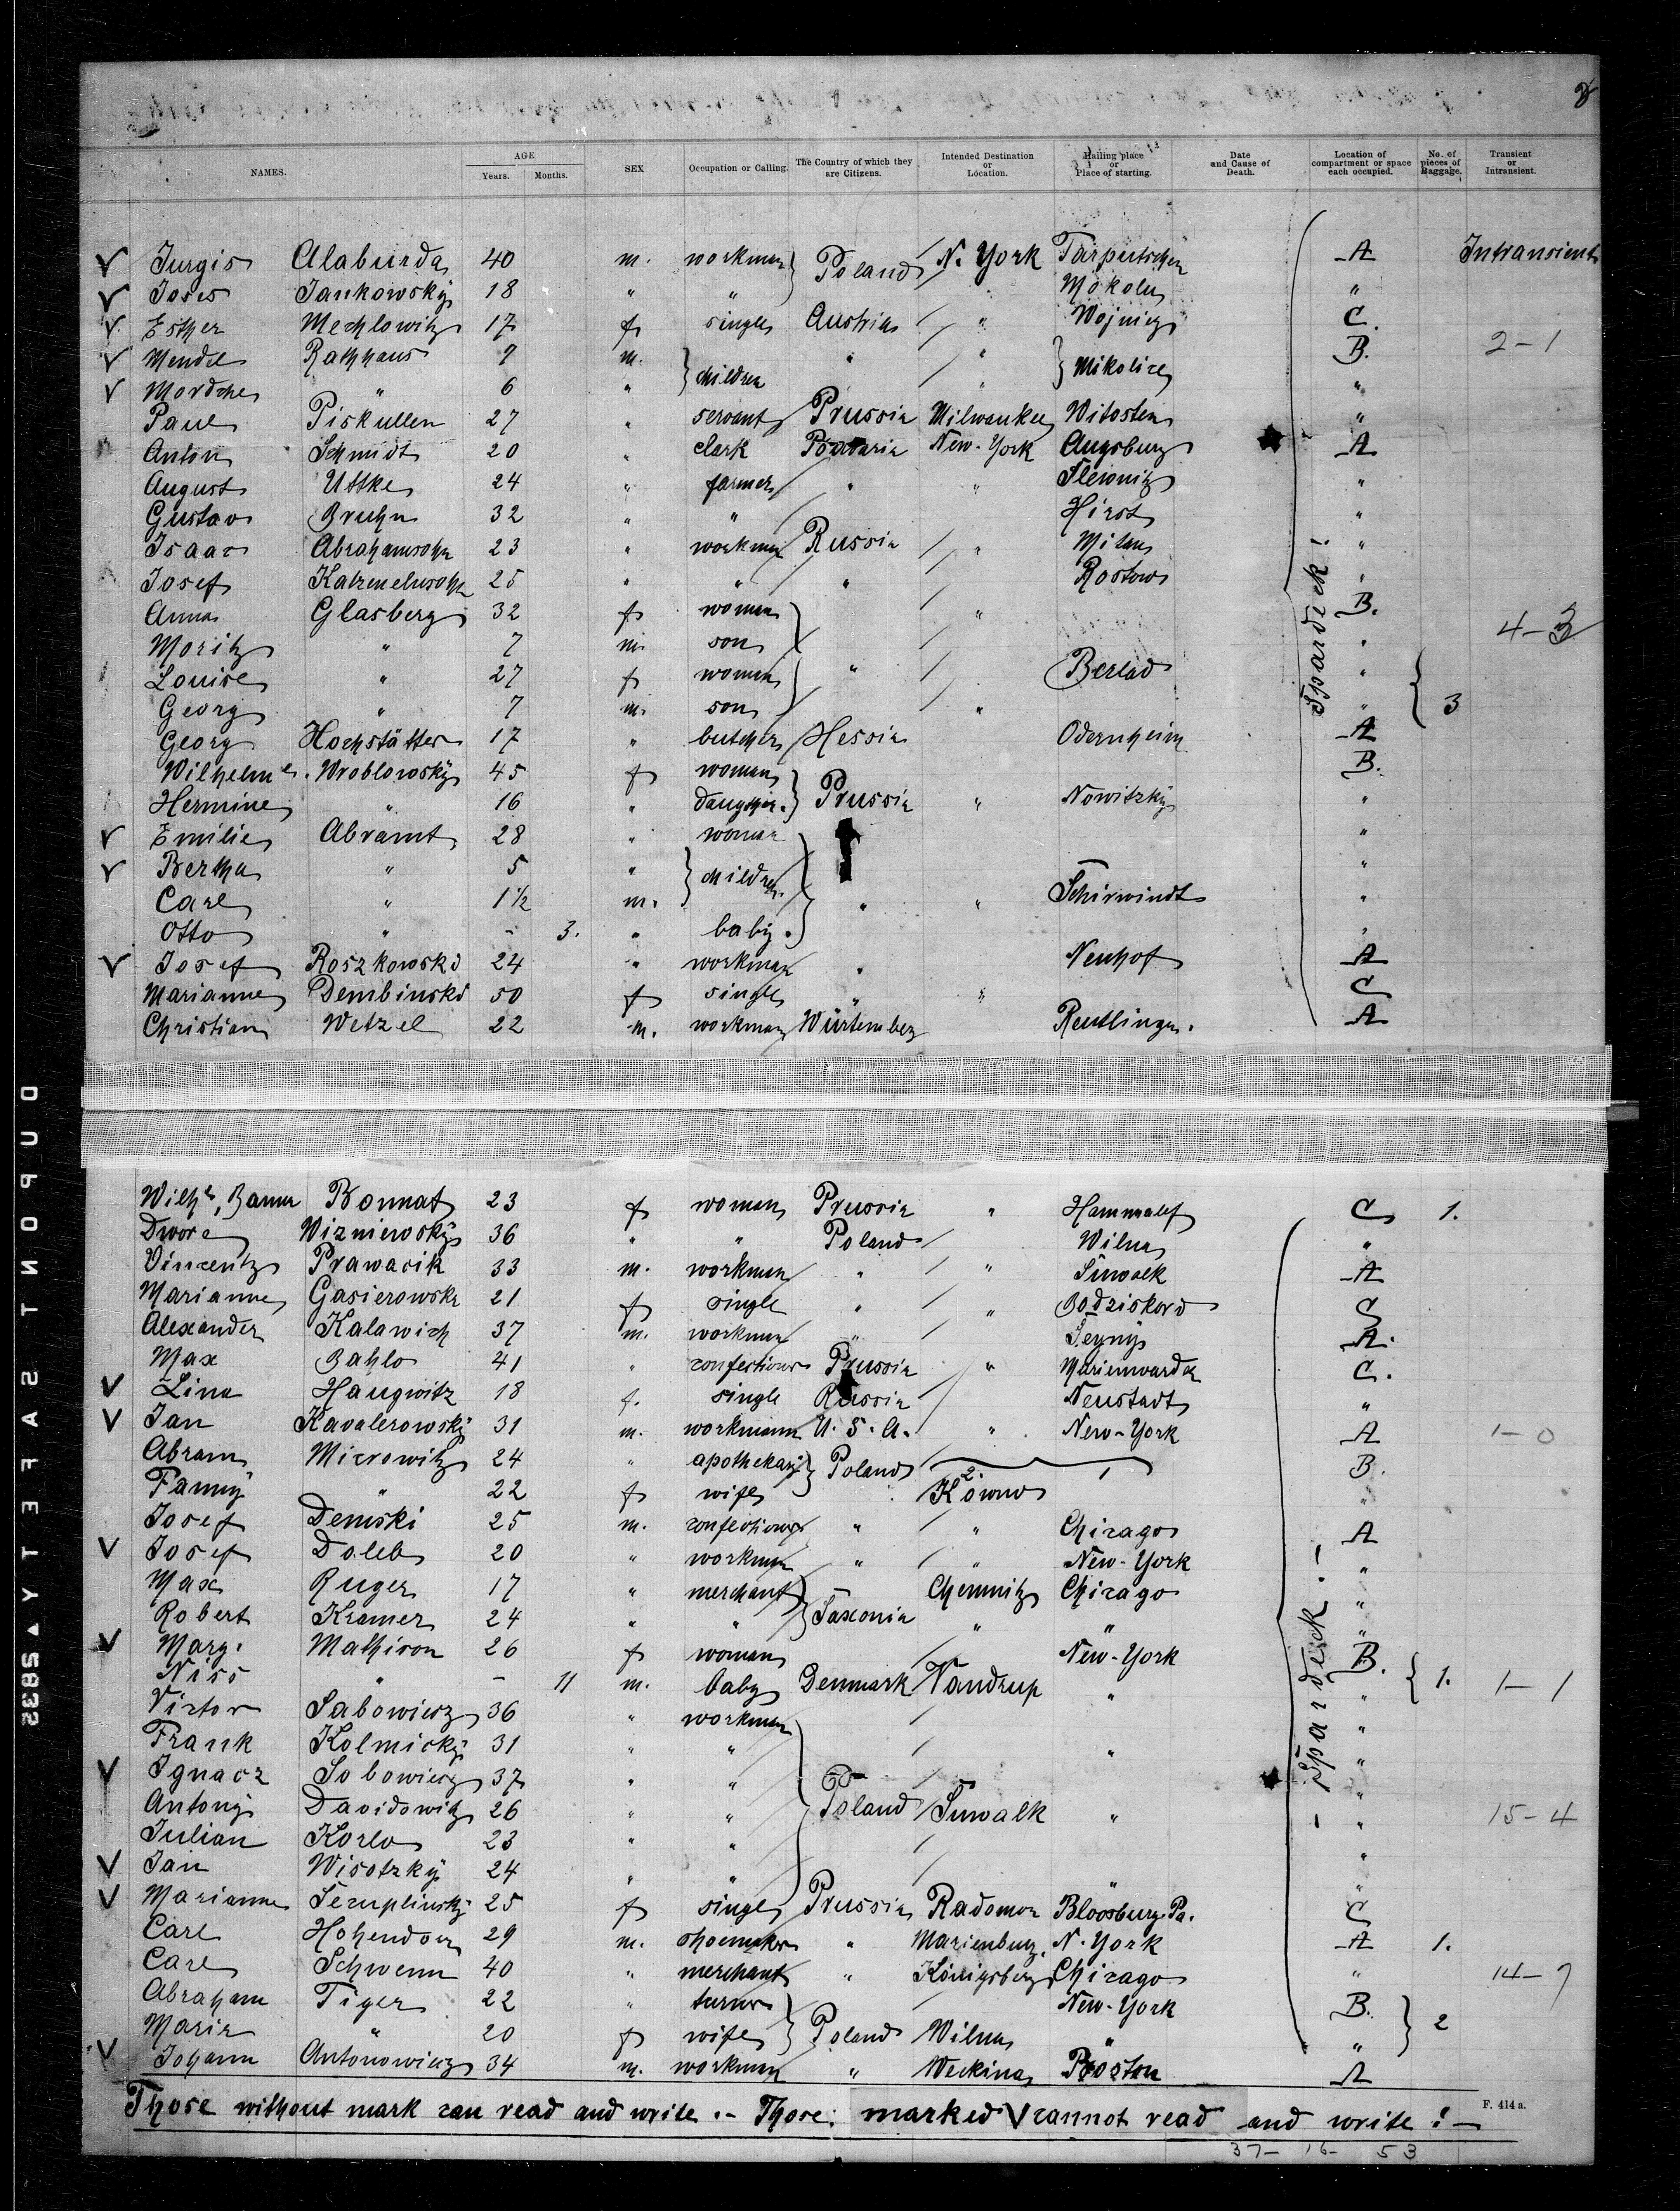 NAMES. AGE Years. Months. SEX Occupation or Calling. The Country of which they are Citizens. Intended Destination or Location. Hailing place or Place of starting. Date and Cause of Death. Location of compartment or space each occupied. No. of pieces of Baggage. Transient or Intransient.
V Jurgis Alaburda 40 m. workman Poland N. York A Intransient
V Joses Jankowsky 18 " " Mokolu "
V Esther Mechlowitz 17 f single Austria " Wojnicz C.
V Mendel Rathhaus 9 m. children " " Mikolice B. 2-1
V Mordche " 6 " " "
Paul Piskullen 27 " servant Prussia Milwaukee Witosten "
Anton Schmidt 20 " clark New-York Augsburg A
August Uttke 24 " farmer " " "
Gustav Bruhn 32 " " Hirst "
Isaac Abrahamsohn 23 " workman Russia " Mitau "
Josef Katzenelusohn 25 " " " Rostow "
Anna Glasberg 32 f woman " B.
Moritz " 7 m. son " 4-3
Louise " 27 f woman " Berlad "
Georg " 7 m. son " " 3
Georg Hochstätter 17 " butcher Hessia Odernheim A
Wilhelme. Wroblowsky 45 f woman B.
Hermine " 16 " daughter. Prussia " Nowitzky "
V Emilie Abramt 28 " woman "
V Bertha " 5 " children "
Carl " 1½ m. " " Schirwindt "
Otto " - 3. " baby. "
V Josef Roszkowski 24 " workman " Neuhof A
Marianne Dembinski 50 f single " " C
Christian Wetzel 22 m. workman Würtemberg Reutlingen. A
Spardeck!
Wilhe, Banna Bonnat 23 f woman Prussia " C 1.
Dwore Wizniewsky 36 " " Poland Wilna "
Vincentz Prawacik 33 m. workman " " Suwalk A
Marianne Gasierowska 21 f single " " C
Alexander Kalawich 37 m. workman " Seyny A.
Max Bahlo 41 " confectioner Prussia " Marienwarder C.
V Lina Haugwitz 18 f. single Russia Neustadt "
V Jan Kavalerowsky 31 m. workmann U.S.A. " New-York A 1-0
Abram Mizrowitz 24 " apothekary Poland B.
Fanny " 22 f wife Kowno "
Josef Demski 25 m. confectioner " " Chicago A
V Josef Doleb 20 " workman " " New-York "
Max Ruger 17 " merchant Saxonia Chemnitz Chicago "
Robert Kramer 24 " " " " "
V Marg. Mathison 26 f woman New-York B.
Niss " - 11 m. baby Denmark Vandrup " " 1. 1-1
Victor Sabowicz 36 " workman "
Frank Kolmicky 31 " " " "
V Ignacz Sobowicz 37 " " "
Antony Davidowitz 26 " " Poland Suwalk " " 15-4
Julian Korlo 23 " " "
V Jan Wisotzky 24 " " " "
V Marianne 25 f single Prussia Radomor Bloosburg Pa. C
Carl Hohendorn 29 m. shoemaker " Marienburg. N. York A 1.
Carl Schwenn 40 " merchant " Königsberg Chicago " 14-7
Abraham Tiger 22 " New-York B.
Marie " 20 f wife Poland Wilna " " 2
V Johann Antonowicz 34 m. workman " Weckina Boston A
- Spardeck! -
Those without mark can read and write.- Those: marked V cannot read and write!-
F. 414 a.
37- 16- 53
DUPONT SAFETY ▲ 5832